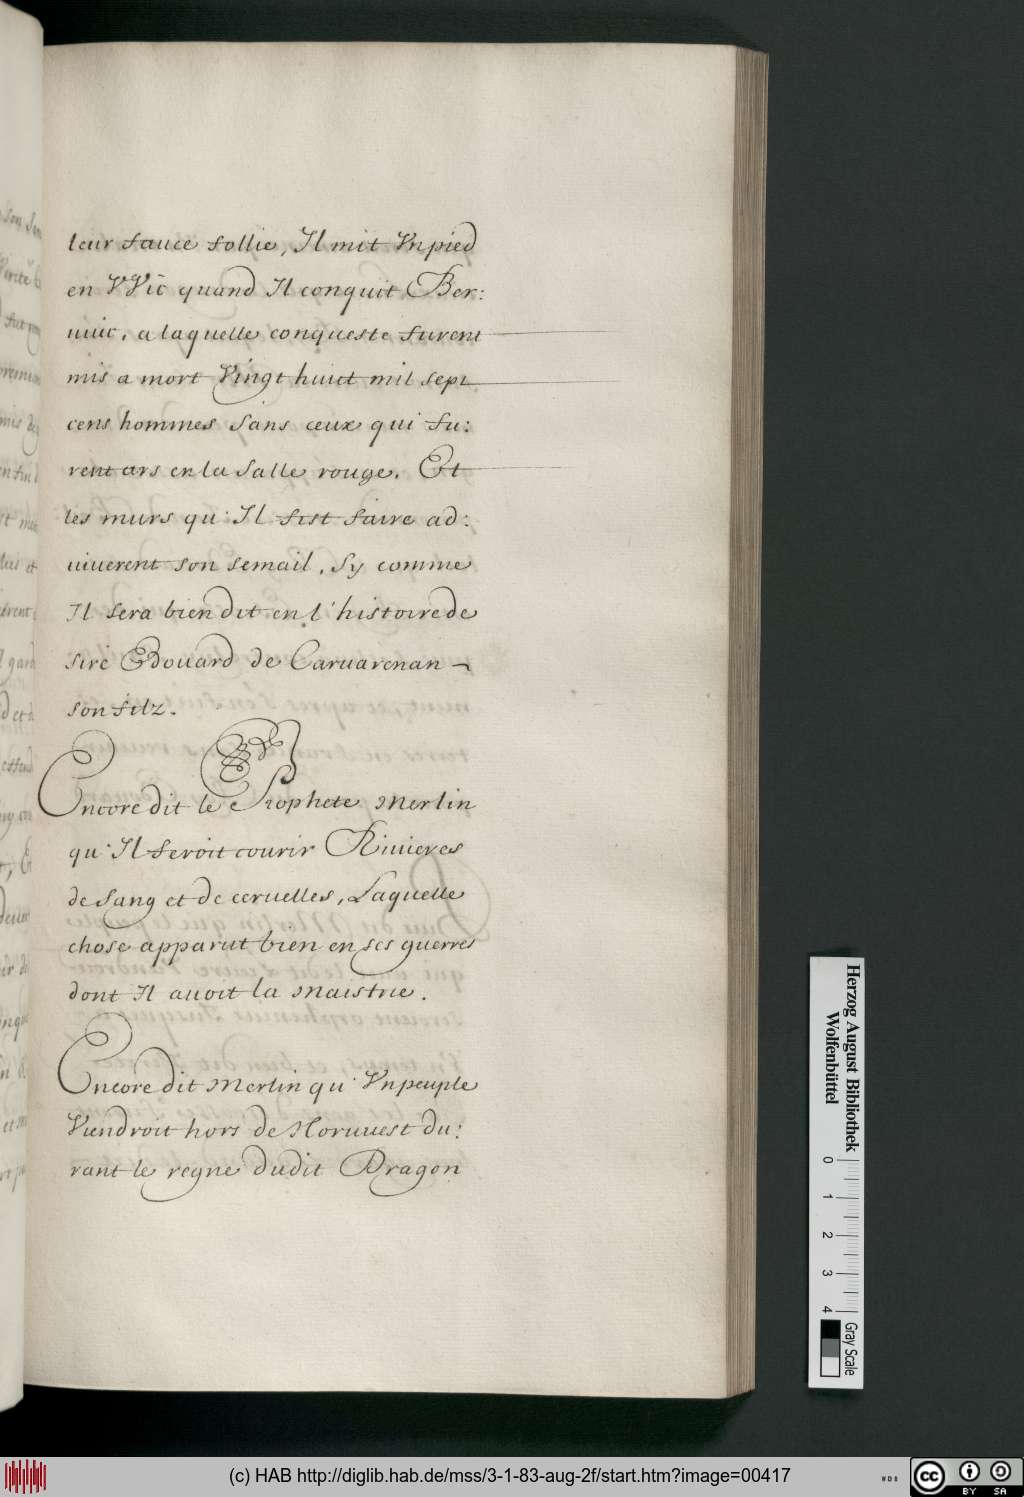 leur fauce follie, Il mit Vn pied
en VVic quand Il conquit Ber:
uuic, a laquelle conqueste furent
mis a mort Vingt huict mil sept
cens hommes sans ceux qui fu:
rent ars en la salle rouge. Et
les murs qu'Il fist faire ad:
uiuerent son semail, sy comme
Il sera bien dit en l'histoire de
sire Edouard de Caruarenan
son filz.
Encore dit le Prophete Merlin
qu'Il feroit courir Riuieres
de sang et de ceruelles, Laquelle
chose apparut bien en ses guerres
dont Il auoit la maistrie.
Encore dit Merlin qu'Vn peuple
Viendroit hors de Noruuest du:
rant le regne dudit Dragon
Herzog August Bibliothek
Wolfenbüttel
0 1 2 3 4
Gray Scale
(c) HAB http://diglib.hab.de/mss/3-1-83-aug-2f/start.htm?image=00417
cc BY SA